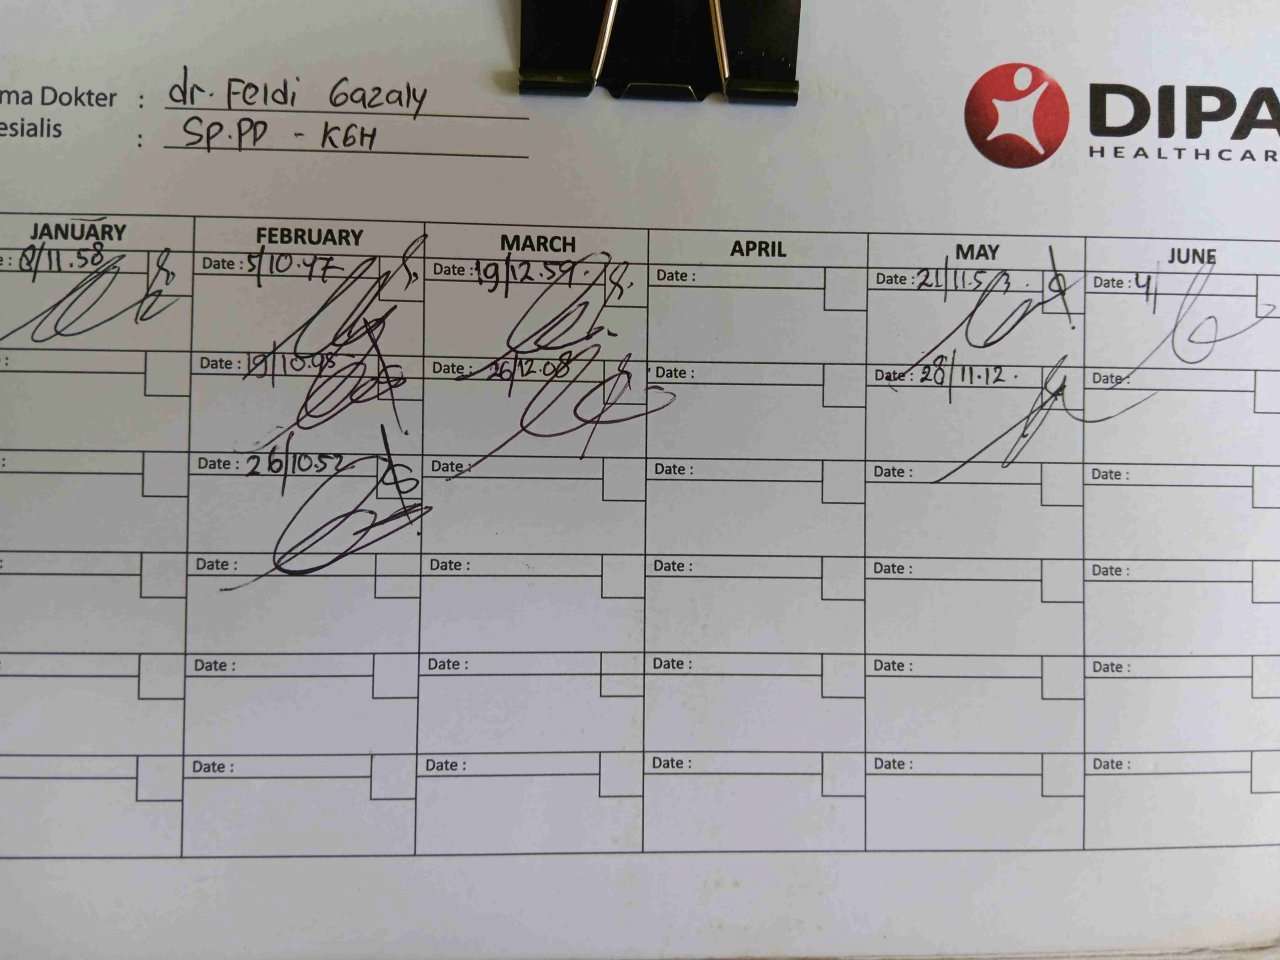 ma Dokter : dr. Feldi Gazaly
esialis : Sp.PD - KGH
DIPA
HEALTHCAR
JANUARY FEBRUARY MARCH APRIL MAY JUNE
: 8/11.58 Date : 5/10.47 Date : 19/12.59. Date : Date : 21/11.53. Date : 4/
: Date : 19/10. Date : 26/12.08 Date : Date : 28/11.12. Date :
: Date : 26/10.52 Date : Date : Date : Date :
: Date : Date : Date : Date : Date :
: Date : Date : Date : Date : Date :
Date : Date : Date : Date : Date :